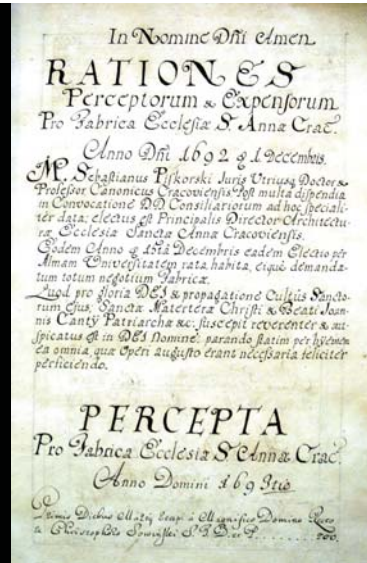 In Nomine Dñi Amen
RATIONES
Perceptorum & Expensorum
Pro Fabrica Ecclesiæ S. Annæ Crac.
Anno Dñi 1692 g 1 Decembris.
M. Sebastianus Piskorski Juris Utriusq Doctor &
Professor Canonicus Cracoviensis Post multa dispendia
in Convocatione DD Consiliariorum ad hoc speciali-
ter data; electus est Principalis Director Architectu-
ræ Ecclesiæ Sanctæ Annæ Cracoviensis.
Eodem Anno g 15ta Decembris eadem Electio per
Almam Universitatem rata habita, eiq demanda-
tum totum negotium Fabricæ.
Quod pro gloria DEI & propagatione Cultûs Sancto-
rum ejus; Sanctæ Materteræ Christi & Beati Joan-
nis Cantÿ Patriarchæ &c. suscepit reverenter & au-
spicatus est in DEI Nomine; parando statim per hyemem
ea omnia, quæ Operi augusto erant necessaria feliciter
perficiendo.
PERCEPTA
Pro Fabrica Ecclesiæ S. Annæ Crac.
Anno Domini 1693tio
Primis Diebus Martÿ accepi à Magnifico Domino Recto
re Christophoro Sowinski S. T. D. et P. 200.